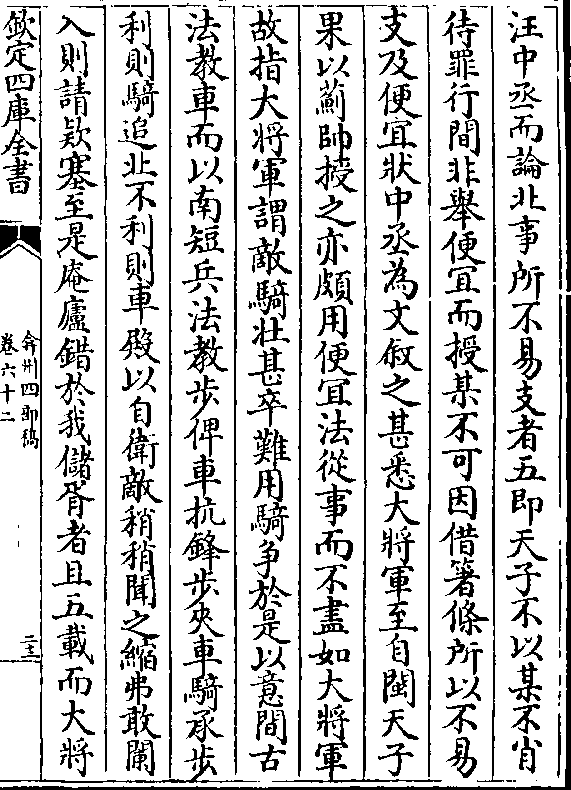 汪中丞而論北事所不易支者五即天子不以某不肖
待罪行間非舉便宜而授某不可因借箸條所以不易
支及便宜狀中丞為文敘之甚悉大將軍至自閩天子
果以薊帥授之亦頗用便宜法從事而不盡如大將軍
故指大將軍謂敵騎壯甚卒難用騎爭於是以意間古
法教車而以南短兵法教步俾車抗鋒步夾車騎承步
利則騎追北不利則車殿以自衛敵稍稍聞之縮弗敢闌
入則請欵塞至是庵廬錯於我儲胥者且五載而大將
欽定四庫全書
弇州四部稿
卷六十二
二十三